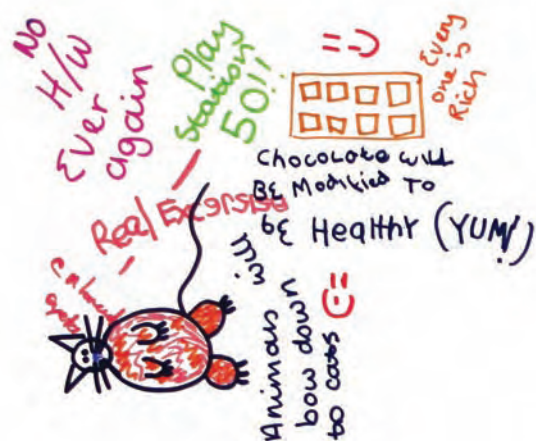 No
H/W
Ever
again
Play
Station
50!!
Every
one is
Rich
Chocolate will
BE Modified To
bE Healthy (YUM!)
Real Excersise
Animals will
bow down
to cats